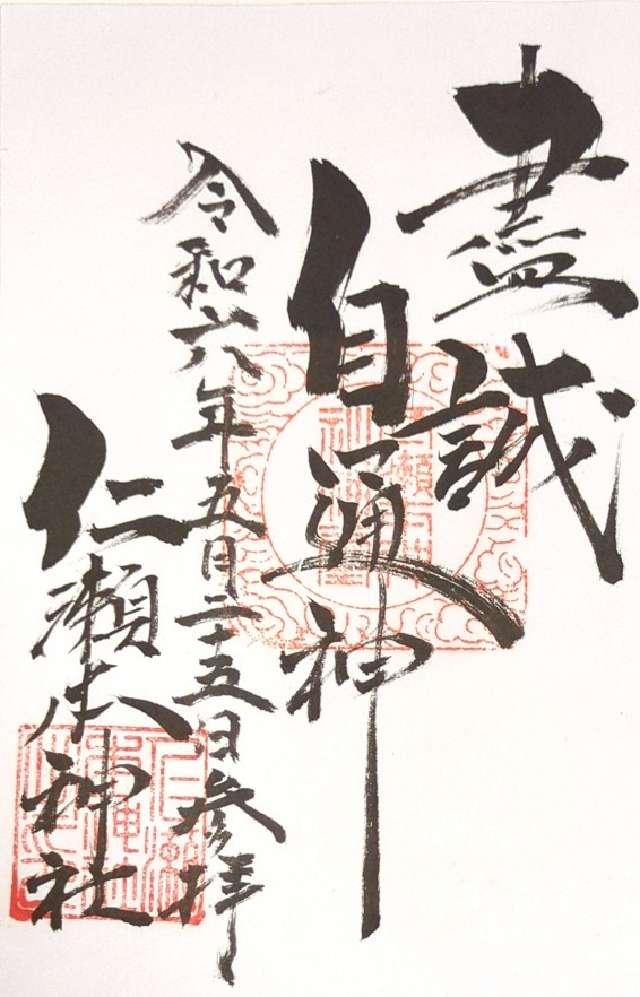 盡誠
自通神
令和六年五月二十五日参拝
仁瀬本神社